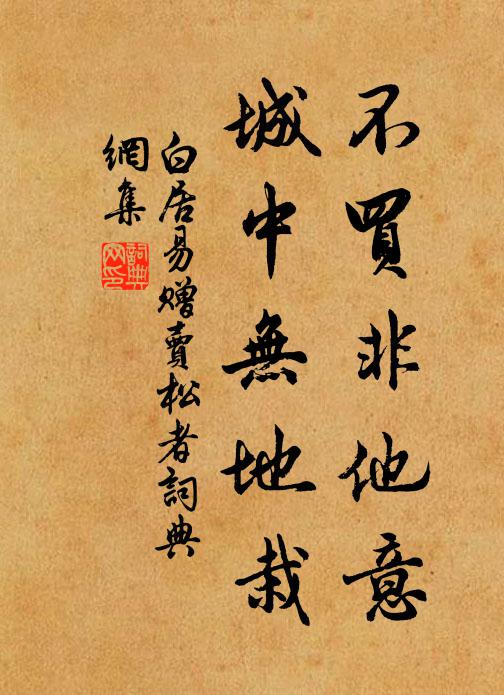 不買非他意
城中無地栽
白居易贈賣松者詞典
網集
詞典
网印